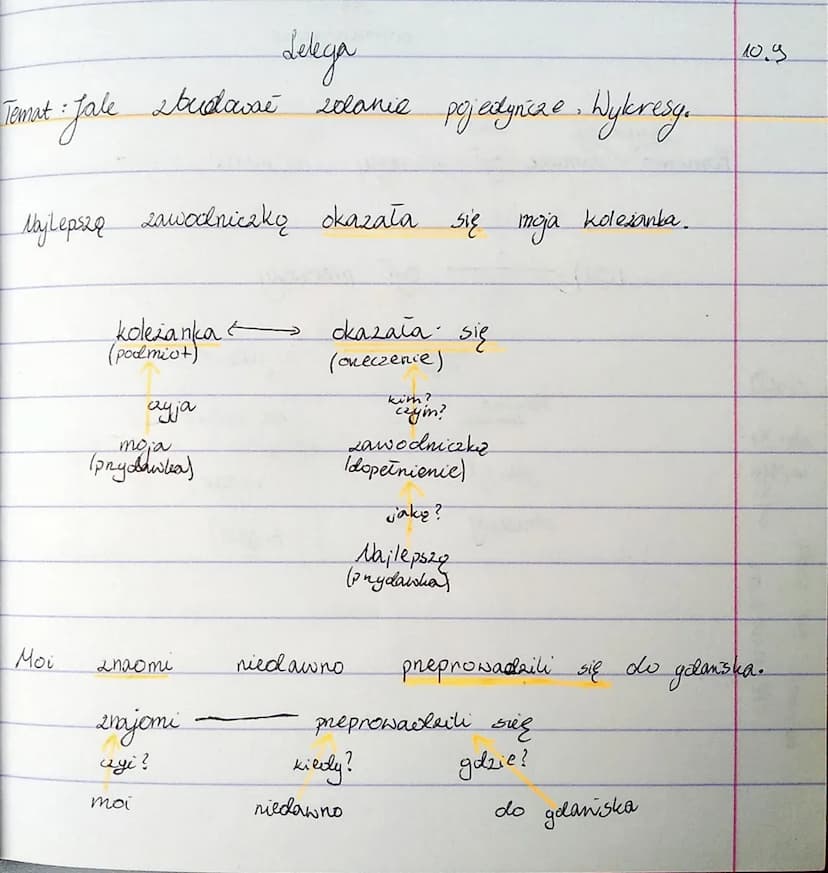 Lekcja 10.9
Temat: Jak zbudować zdanie pojedyńcze. Wykresy.
Najlepszą zawodniczką okazała się moja koleżanka.
koleżanka ⟷ okazała się
(podmiot) (orzeczenie)
czyja kim?
czym?
moja zawodniczką
(przydawka) (dopełnienie)
jaką?
Najlepszą
(przydawka)
Moi znaomi niedawno przeprowadzili się do gdańska.
znajomi — przeprowadzili się
czyi? kiedy? gdzie?
moi niedawno do gdańska